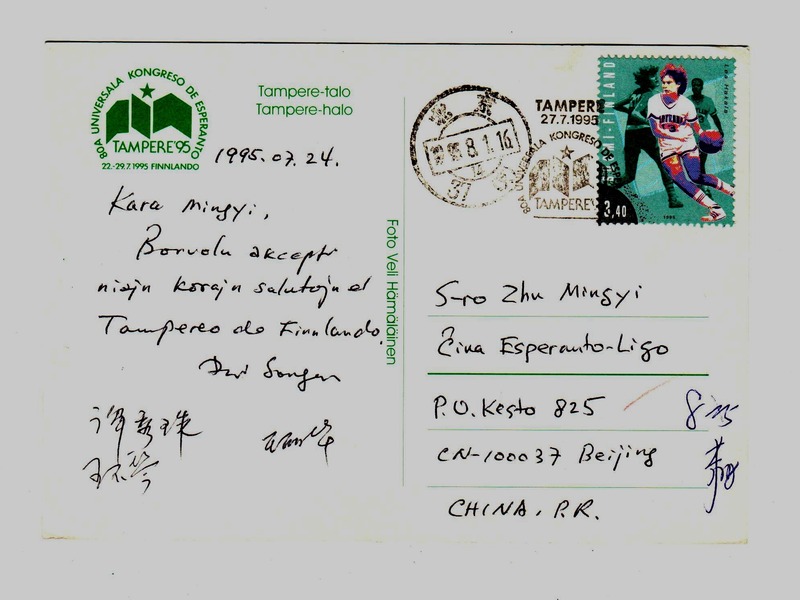 80A UNIVERSALA KONGRESO DE ESPERANTO
TAMPERE'95
22.-29.7.1995 FINNLANDO
Tampere-talo
Tampere-halo
1995.07.24.
Kara Mingyi,
Bonvolu akcepti
niajn korajn salutojn el
Tampereo de Finnlando.
许秀珠
Foto Veli Hämäläinen
北京
8.1.16
37
TAMPERE
27.7.1995
80A UNIVERSALA KONGRESO DE ESP
TAMPERE'
I-FINLAND
3,40
1995
S-ro Zhu Mingyi
Ĉina Esperanto-Ligo
P.O. Kesto 825
CN-100037 Beijing
CHINA, P.R.